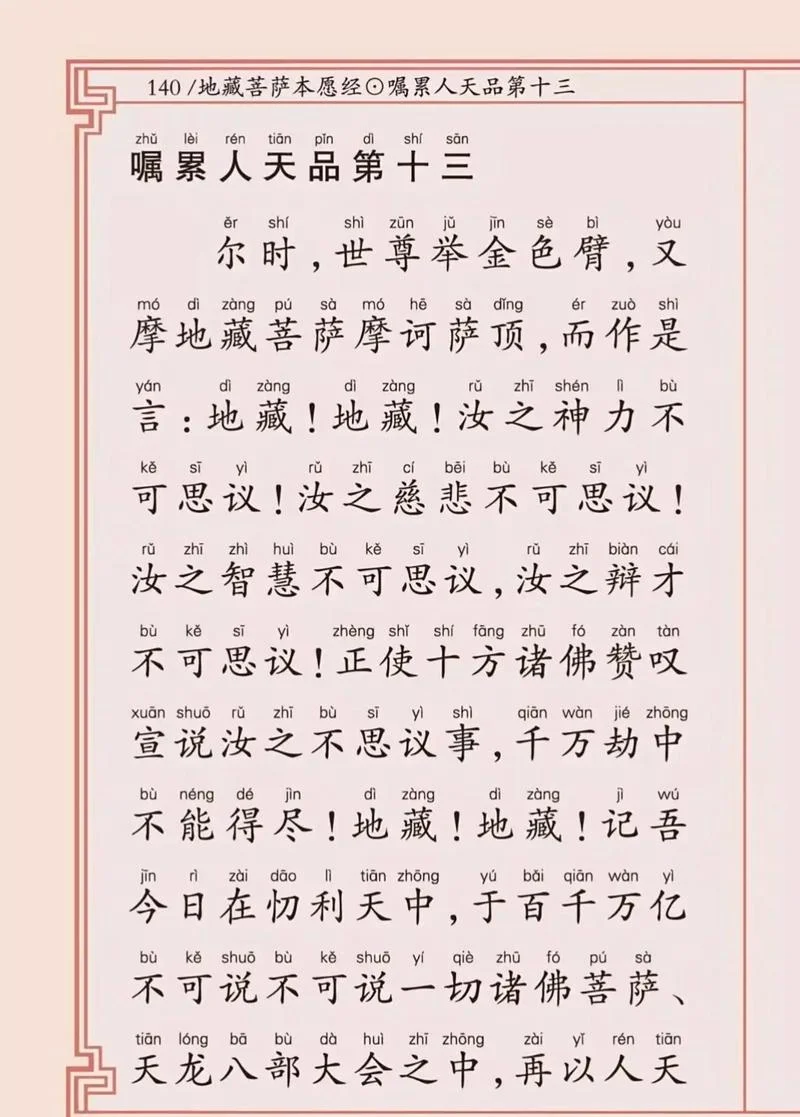 140/地藏菩萨本愿经⊙嘱累人天品第十三
zhǔ lèi rén tiān pǐn dì shí sān
嘱累人天品第十三
ěr shí shì zūn jǔ jīn sè bì yòu
尔时,世尊举金色臂,又
mó dì zàng pú sà mó hē sà dǐng ér zuò shì
摩地藏菩萨摩诃萨顶,而作是
yán dì zàng dì zàng rǔ zhī shén lì bù
言:地藏!地藏!汝之神力不
kě sī yì rǔ zhī cí bēi bù kě sī yì
可思议!汝之慈悲不可思议!
rǔ zhī zhì huì bù kě sī yì rǔ zhī biàn cái
汝之智慧不可思议,汝之辩才
bù kě sī yì zhèng shǐ shí fāng zhū fó zàn tàn
不可思议!正使十方诸佛赞叹
xuān shuō rǔ zhī bù sī yì shì qiān wàn jié zhōng
宣说汝之不思议事,千万劫中
bù néng dé jìn dì zàng dì zàng jì wú
不能得尽!地藏!地藏!记吾
jīn rì zài dāo lì tiān zhōng yú bǎi qiān wàn yì
今日在忉利天中,于百千万亿
bù kě shuō bù kě shuō yí qiè zhū fó pú sà
不可说不可说一切诸佛菩萨、
tiān lóng bā bù dà huì zhī zhōng zài yǐ rén tiān
天龙八部大会之中,再以人天